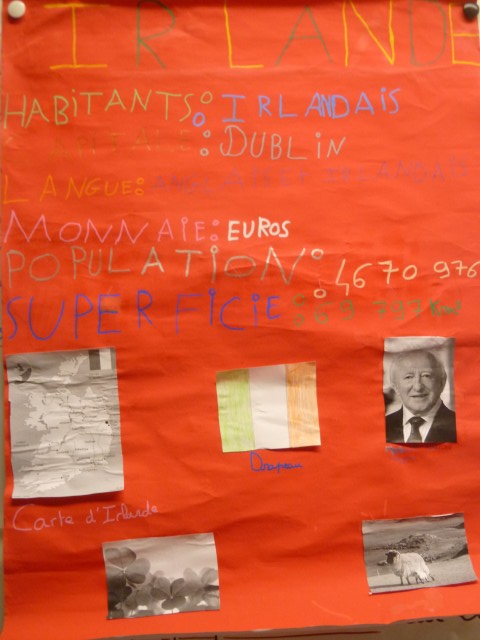 IRLANDE
HABITANTS: IRLANDAIS
CAPITALE: DUBLIN
LANGUE: ANGLAIS ET IRLANDAIS
MONNAIE: EUROS
POPULATION: 4670 976
SUPERFICIE: 69 797 Km²
Drapeau
Carte d'Irlande